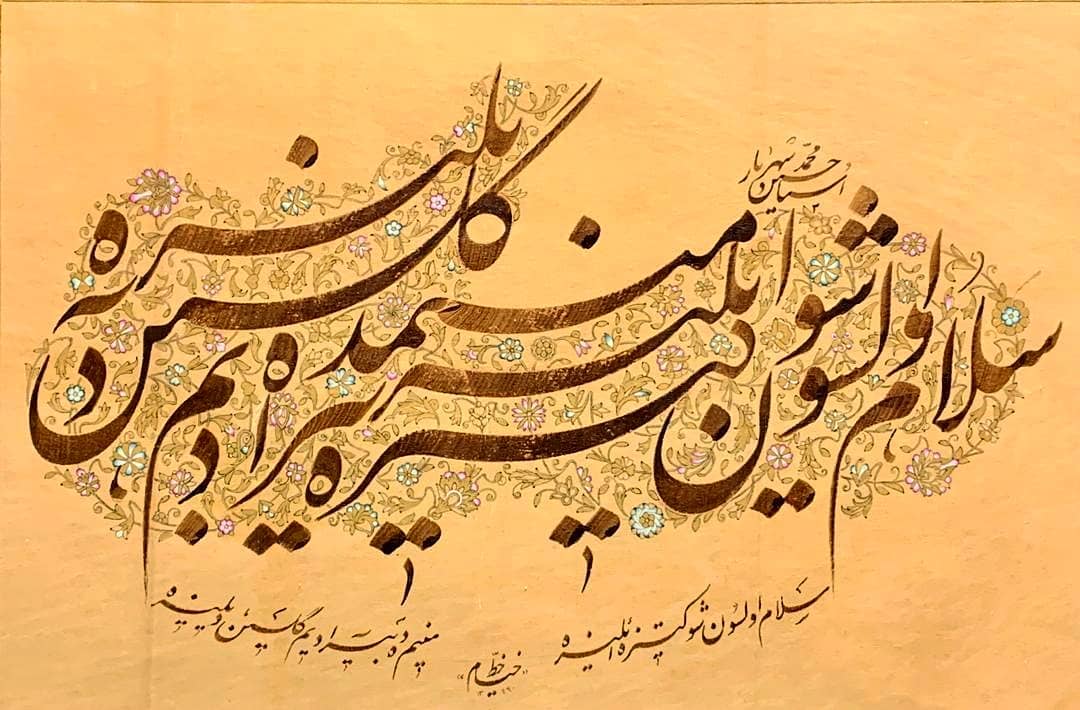 استاد محمد حسین شهریار
سلام اولسون شوکتیزه ایلیزه
منیمده بیر آدیم گلسین دیلیزه
سَلام اولسون شوکتیزه ائلیزه
منیم ده بیر ادیم گلسین دیلیزه
«خط خیام»